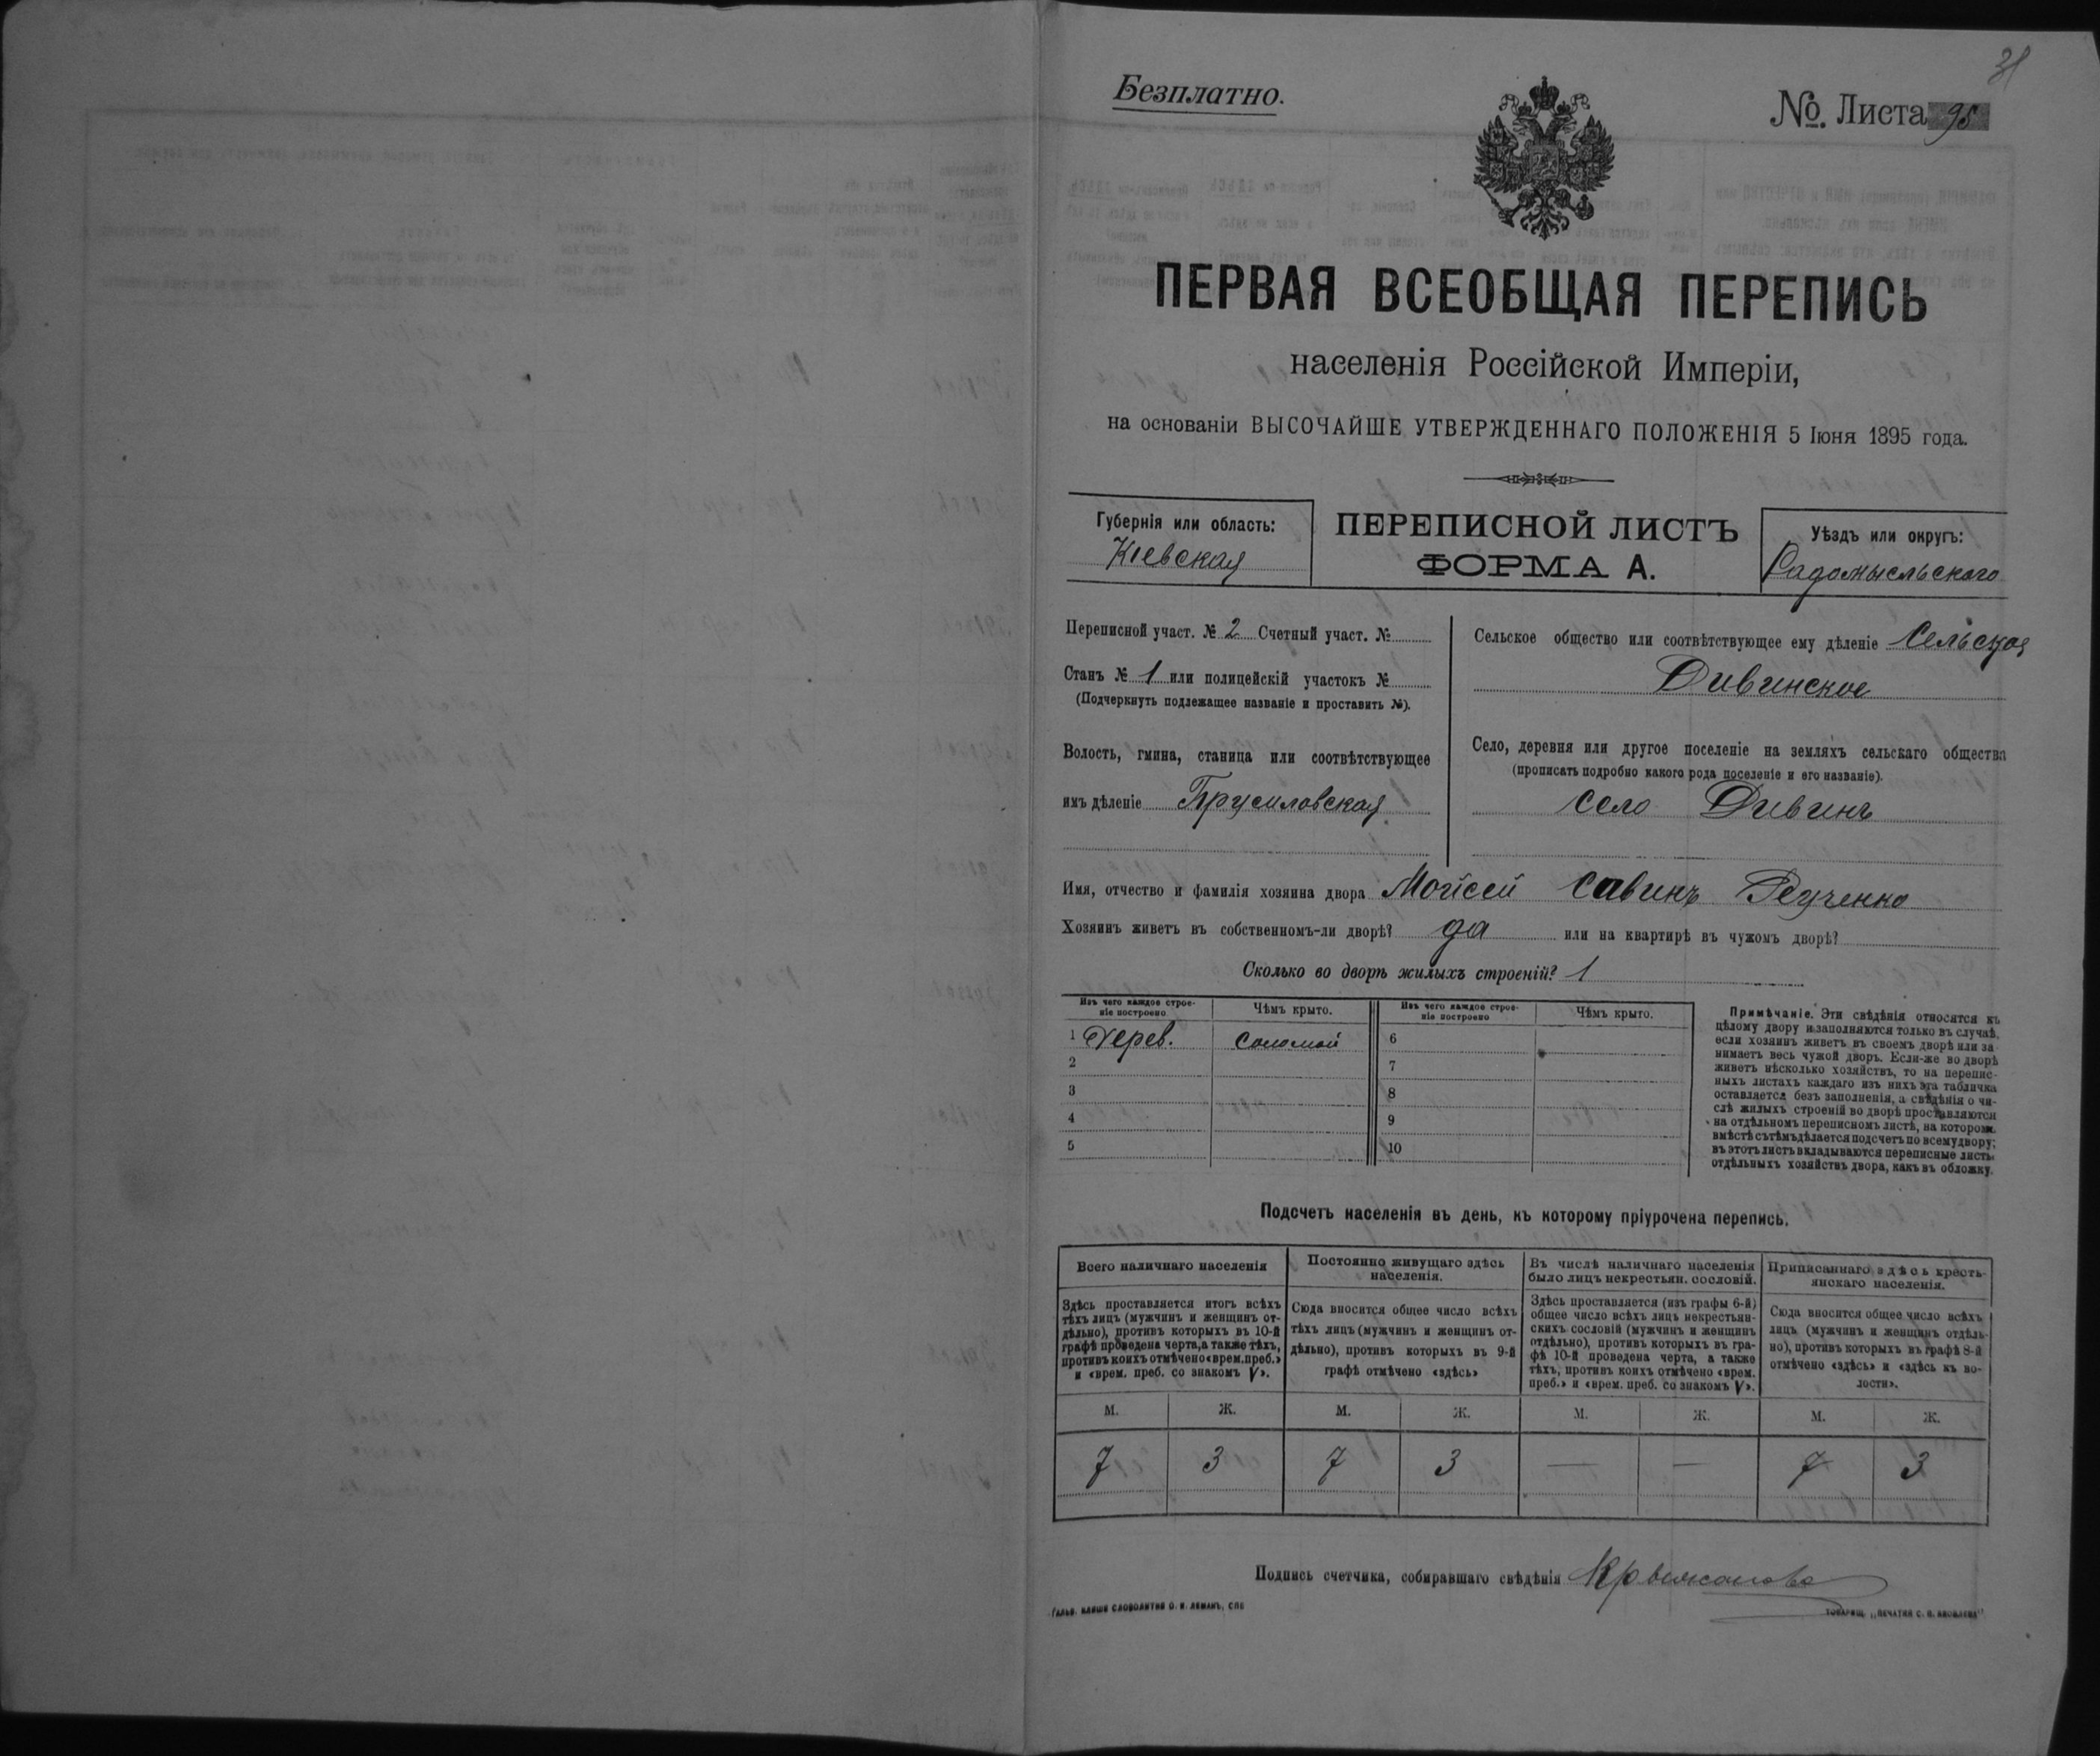 31
Безплатно.
№. Листа 95
ПЕРВАЯ ВСЕОБЩАЯ ПЕРЕПИСЬ
населенія Россійской Имперіи,
на основаніи ВЫСОЧАЙШЕ УТВЕРЖДЕННАГО ПОЛОЖЕНІЯ 5 Іюня 1895 года.
Губернія или область:
Кіевская
ПЕРЕПИСНОЙ ЛИСТЪ
ФОРМА А.
Уѣздъ или округъ:
Радомысльского
Переписной участ. № 2 Счетный участ. №
Станъ № 1 или полицейскій участокъ №
(Подчеркнуть подлежащее названіе и проставить №).
Волость, гмина, станица или соотвѣтствующее
имъ дѣленіе Брусиловская
Сельское общество или соотвѣтствующее ему дѣленіе Сельское
Дивинское
Село, деревня или другое поселеніе на земляхъ сельскаго общества
(прописать подробно какого рода поселеніе и его названіе).
село Дивинъ
Имя, отчество и фамилія хозяина двора Мойсей Савинъ
Хозяинъ живетъ въ собственномъ-ли дворѣ? да или на квартирѣ въ чужомъ дворѣ?
Сколько во дворѣ жилыхъ строеній? 1
Изъ чего каждое строе-
ніе построено
Чѣмъ крыто.
Изъ чего каждое строе-
ніе построено
Чѣмъ крыто.
1 Дерев. Соломой 6
2 7
3 8
4 9
5 10
Примѣчаніе. Эти свѣдѣнія относятся къ
цѣлому двору и заполняются только въ случаѣ,
если хозяинъ живетъ въ своемъ дворѣ или за-
нимаетъ весь чужой дворъ. Если-же во дворѣ
живетъ нѣсколько хозяйствъ, то на перепис-
ныхъ листахъ каждаго изъ нихъ эта табличка
оставляется безъ заполненія, а свѣдѣнія о чи-
слѣ жилыхъ строеній во дворѣ проставляются
на отдѣльномъ переписномъ листѣ, на которомъ
вмѣстѣ съ тѣмъ дѣлается подсчетъ по всему двору;
въ этотъ листъ вкладываются переписные листы
отдѣльныхъ хозяйствъ двора, какъ въ обложку.
Подсчетъ населенія въ день, къ которому пріурочена перепись.
Всего наличнаго населенія
Здѣсь проставляется итогъ всѣхъ
тѣхъ лицъ (мужчинъ и женщинъ от-
дѣльно), противъ которыхъ въ 10-й
графѣ проведена черта, а также тѣхъ,
противъ коихъ отмѣчено «врем. преб.»
и «врем. преб. со знакомъ V».
Постоянно живущаго здѣсь
населенія.
Сюда вносится общее число всѣхъ
тѣхъ лицъ (мужчинъ и женщинъ от-
дѣльно), противъ которыхъ въ 9-й
графѣ отмѣчено «здѣсь»
Въ числѣ наличнаго населенія
было лицъ некрестьян. сословій.
Здѣсь проставляется (изъ графы 6-й)
общее число всѣхъ лицъ некрестьян-
скихъ сословій (мужчинъ и женщинъ
отдѣльно), противъ которыхъ въ гра-
фѣ 10-й проведена черта, а также
тѣхъ, противъ коихъ отмѣчено «врем.
преб.» и «врем. преб. со знакомъ V».
Приписаннаго здѣсь кресть-
янскаго населенія.
Сюда вносится общее число всѣхъ
лицъ (мужчинъ и женщинъ отдѣль-
но), противъ которыхъ въ графѣ 8-й
отмѣчено «здѣсь» и «здѣсь къ во-
лости».
М. Ж. М. Ж. М. Ж. М. Ж.
7 3 7 3 — — 7 3
Подпись счетчика, собиравшаго свѣдѣнія
ГАЛЬВ. КЛИШЕ СЛОВОЛИТНИ О. И. ЛЕМАНЪ, СПБ
ТОВАРИЩ. „ПЕЧАТНЯ С. П. ЯКОВЛЕВА"